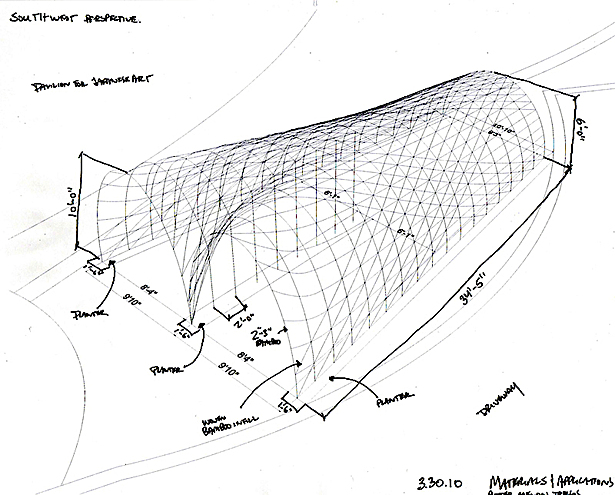 SOUTHWEST PERSPECTIVE.
PAVILION FOR JAPANESE ART
10'-0"
9'-0"
10'-10"
6'-1"
6'-1"
34'-5"
1'-6"
PLANTER
8'-4"
9'10"
1'-6"
PLANTER
2'-0"
2'-3"
BAMBOO
8'4"
9'10"
WOVEN
BAMBOO INFILL
1'-6"
PLANTER
DRIVEWAY
3.30.10
MATERIALS & APPLICATIONS